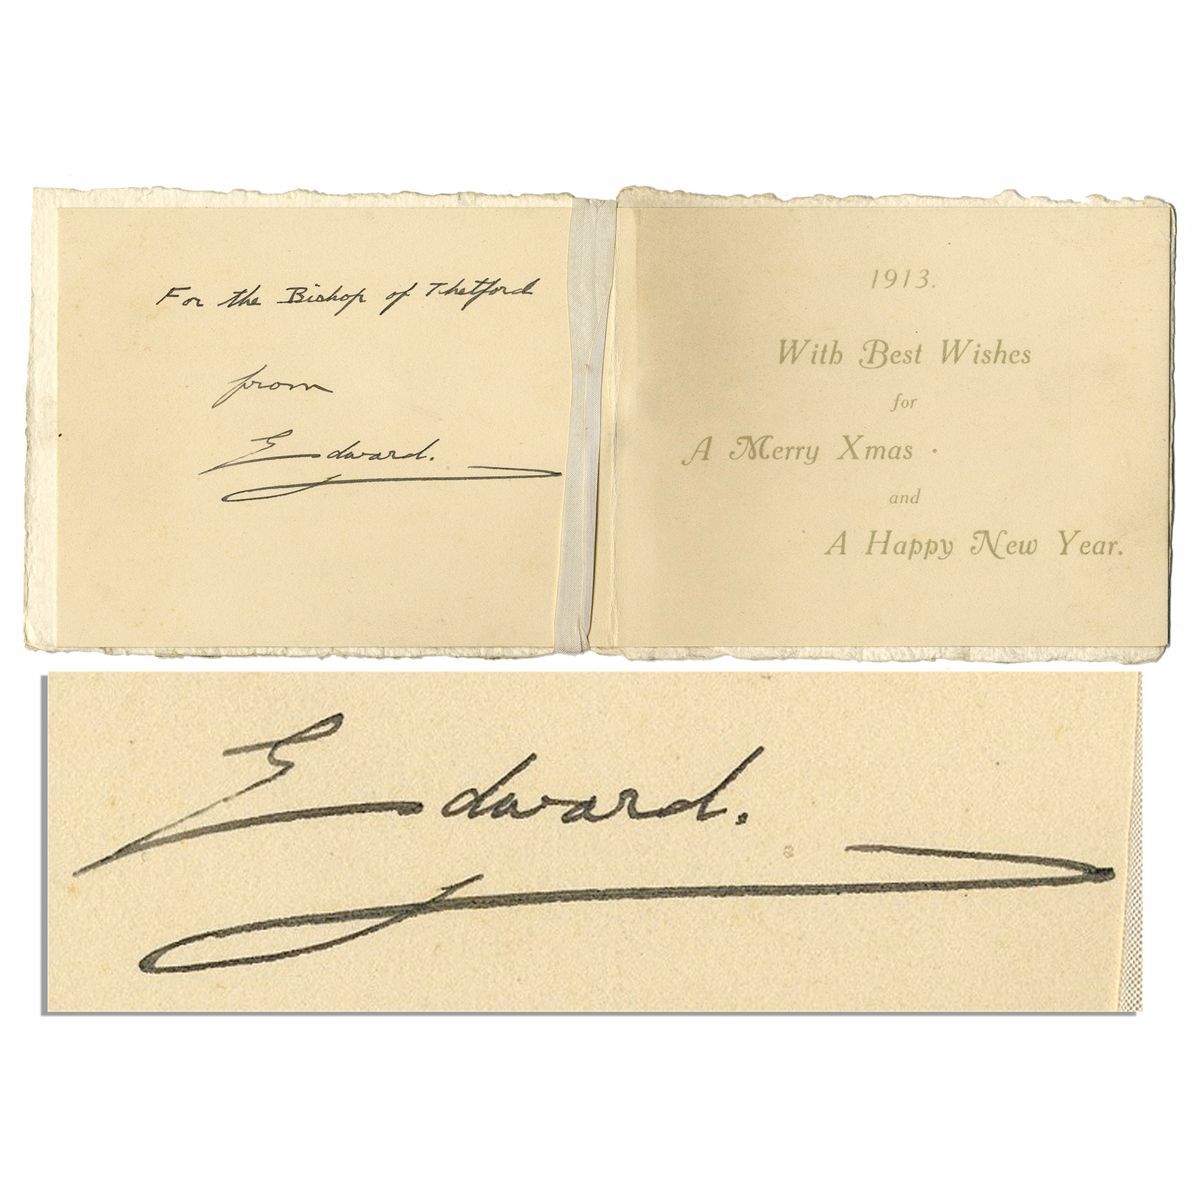 For the Bishop of Thetford
from
Edward.
1913.
With Best Wishes
for
A Merry Xmas .
and
A Happy New Year.
Edward.